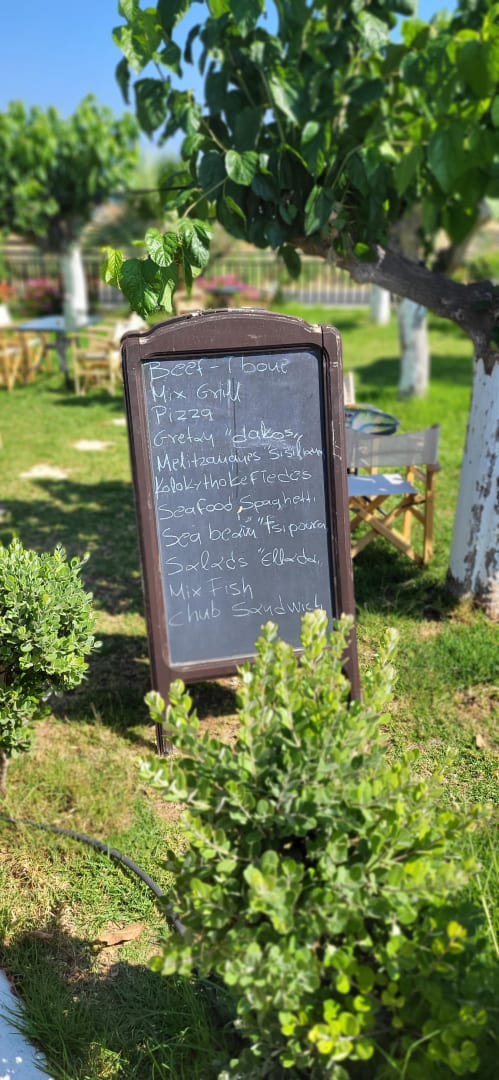 Beef - T boue
Mix Grill
Pizza
Gretay "dakos"
Melitzanayes "Sisiliana
Kolokythokeftedes
Seafood Spaghetti
Sea beam "Tsipoura
Salads "Ellada,,
Mix Fish
Chub Sandwich